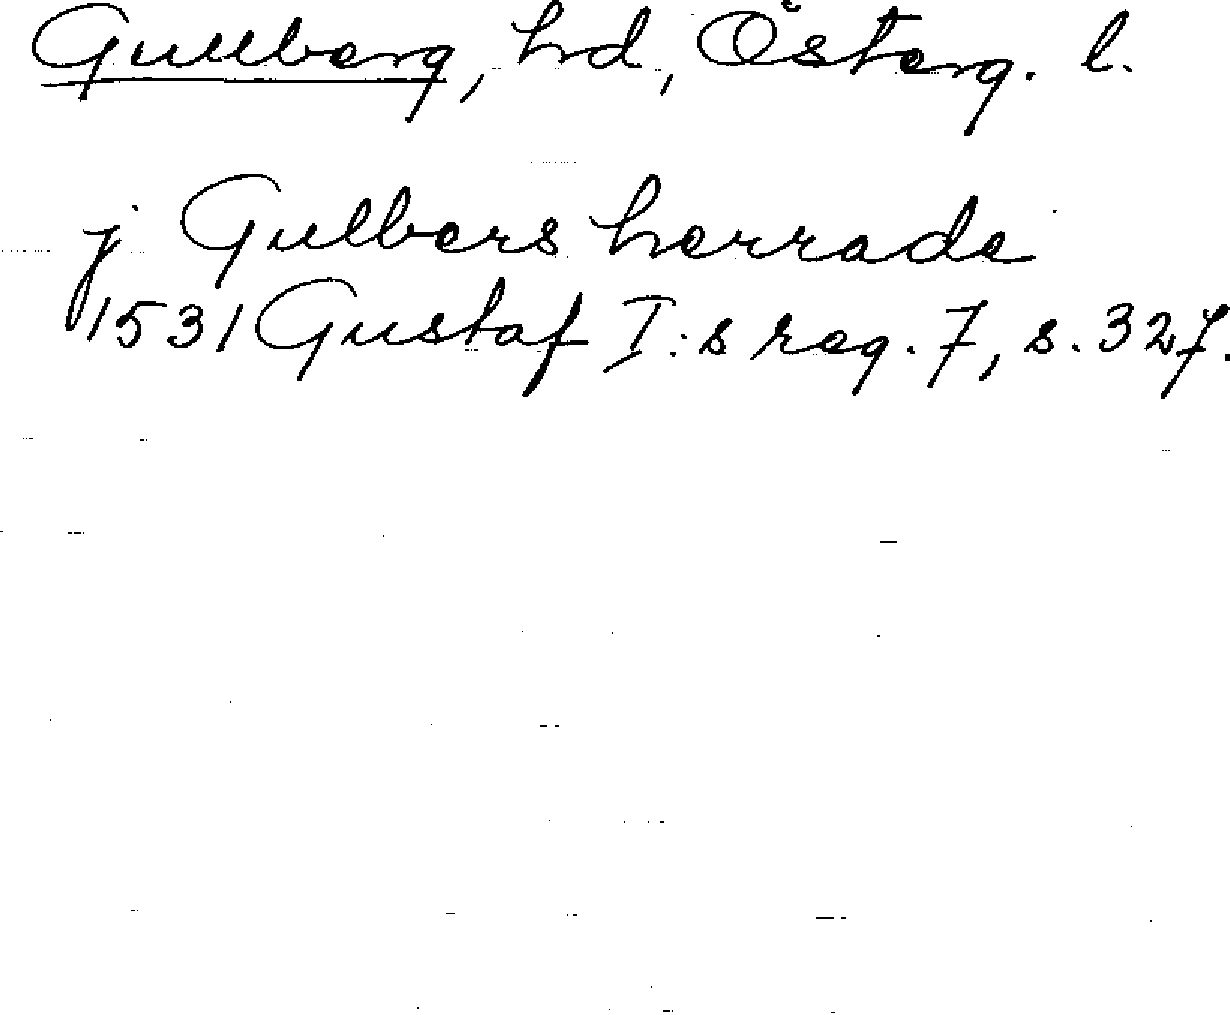 Gullberg, hd, Österg. l.
j Gulbers herrade
1531 Gustaf I:s reg. 7, s. 327.